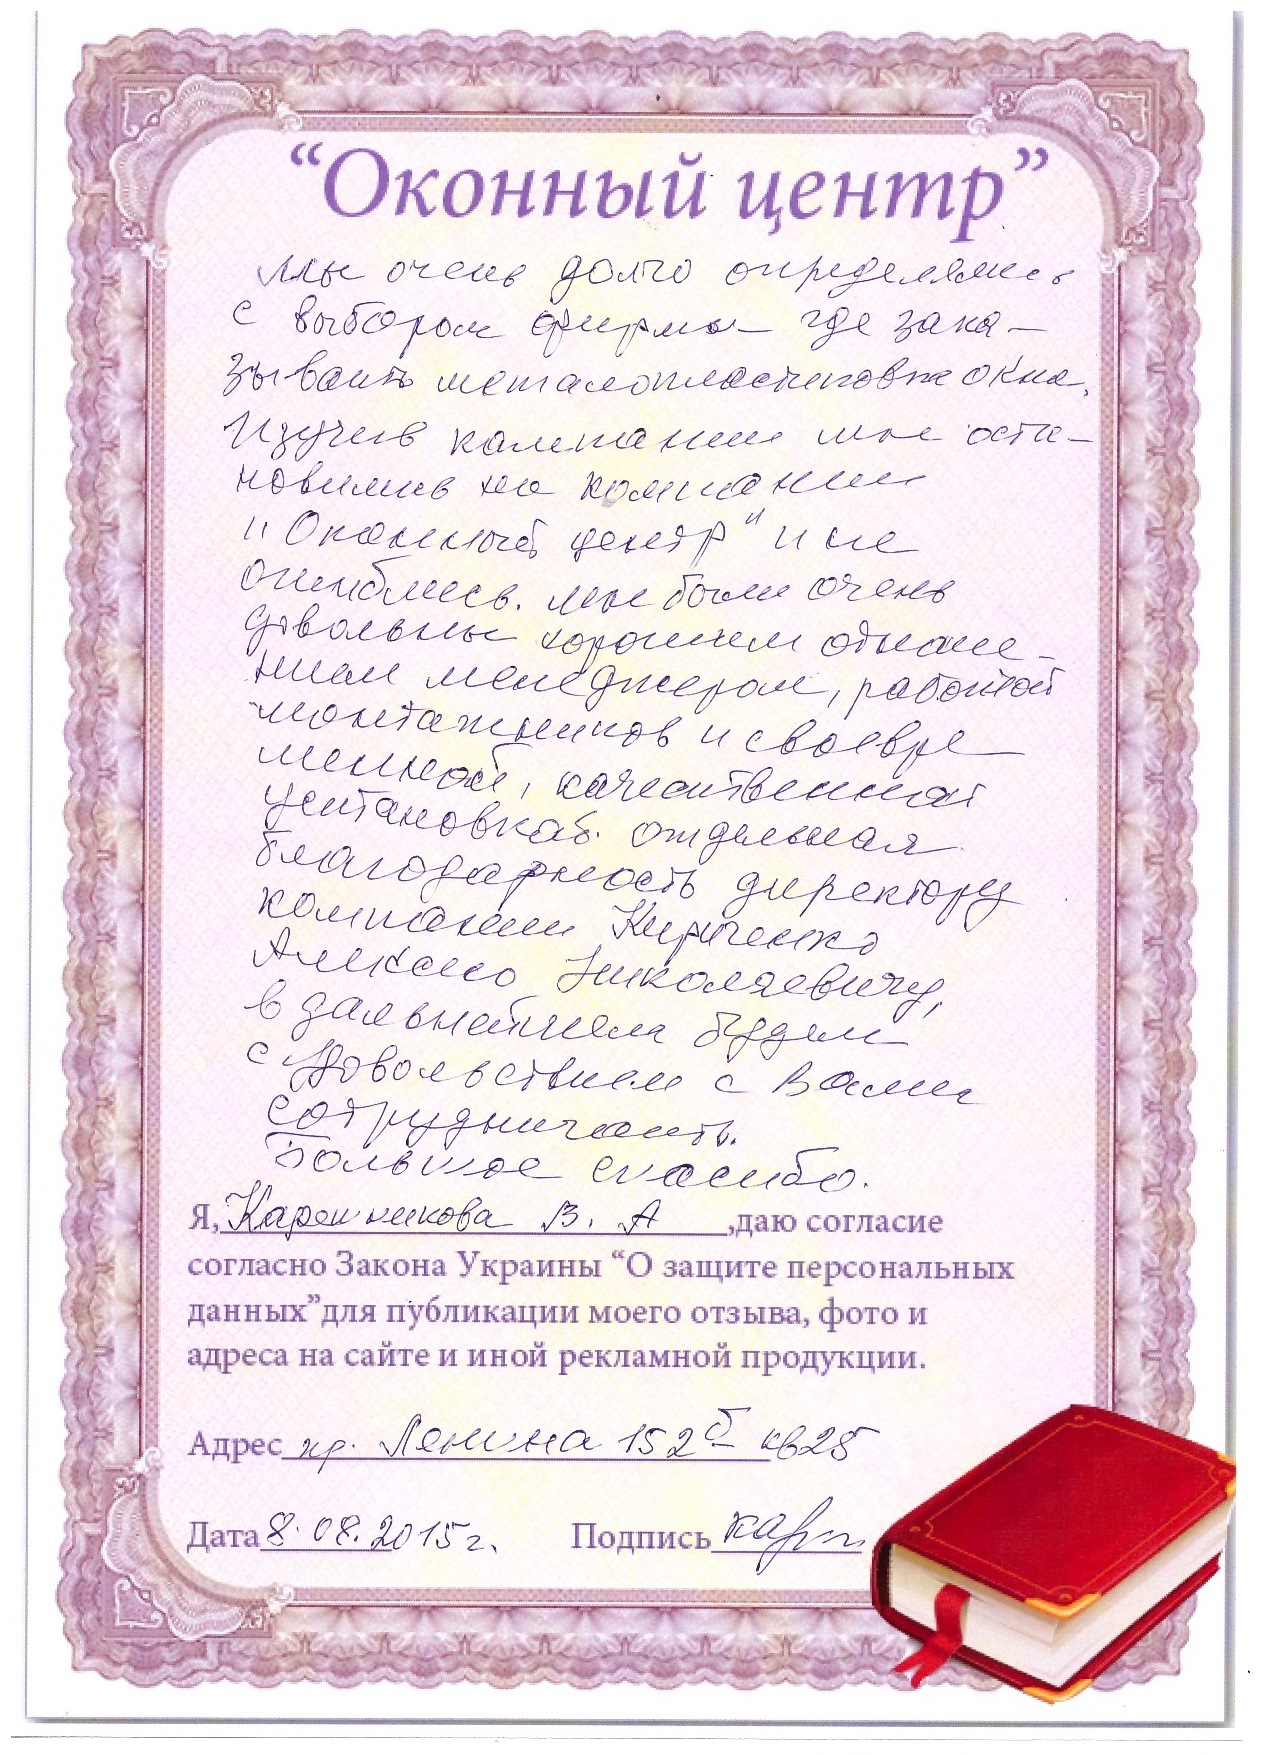 “Оконный центр”
Мы очень долго определялись
с выбором фирмы – где зака-
зывать металопластиковые окна.
Изучив компании мы оста-
новились на компании
"Оконный центр" и не
ошиблись. Мы были очень
довольны хорошем отноше-
нием менеджером, работой
монтажников и своевре
менной, качественной
установкой. Отдельная
благодарность директору
компании Кириченко
Николаевичу,
в дальнейшем будем
с удовольствием с Вами
сотрудничать.
Большое спасибо.
Я, В. А ,даю согласие
согласно Закона Украины “О защите персональных
данных”для публикации моего отзыва, фото и
адреса на сайте и иной рекламной продукции.
Адрес пр. Ленина 152б кв25
Дата 8.08.2015г. Подпись